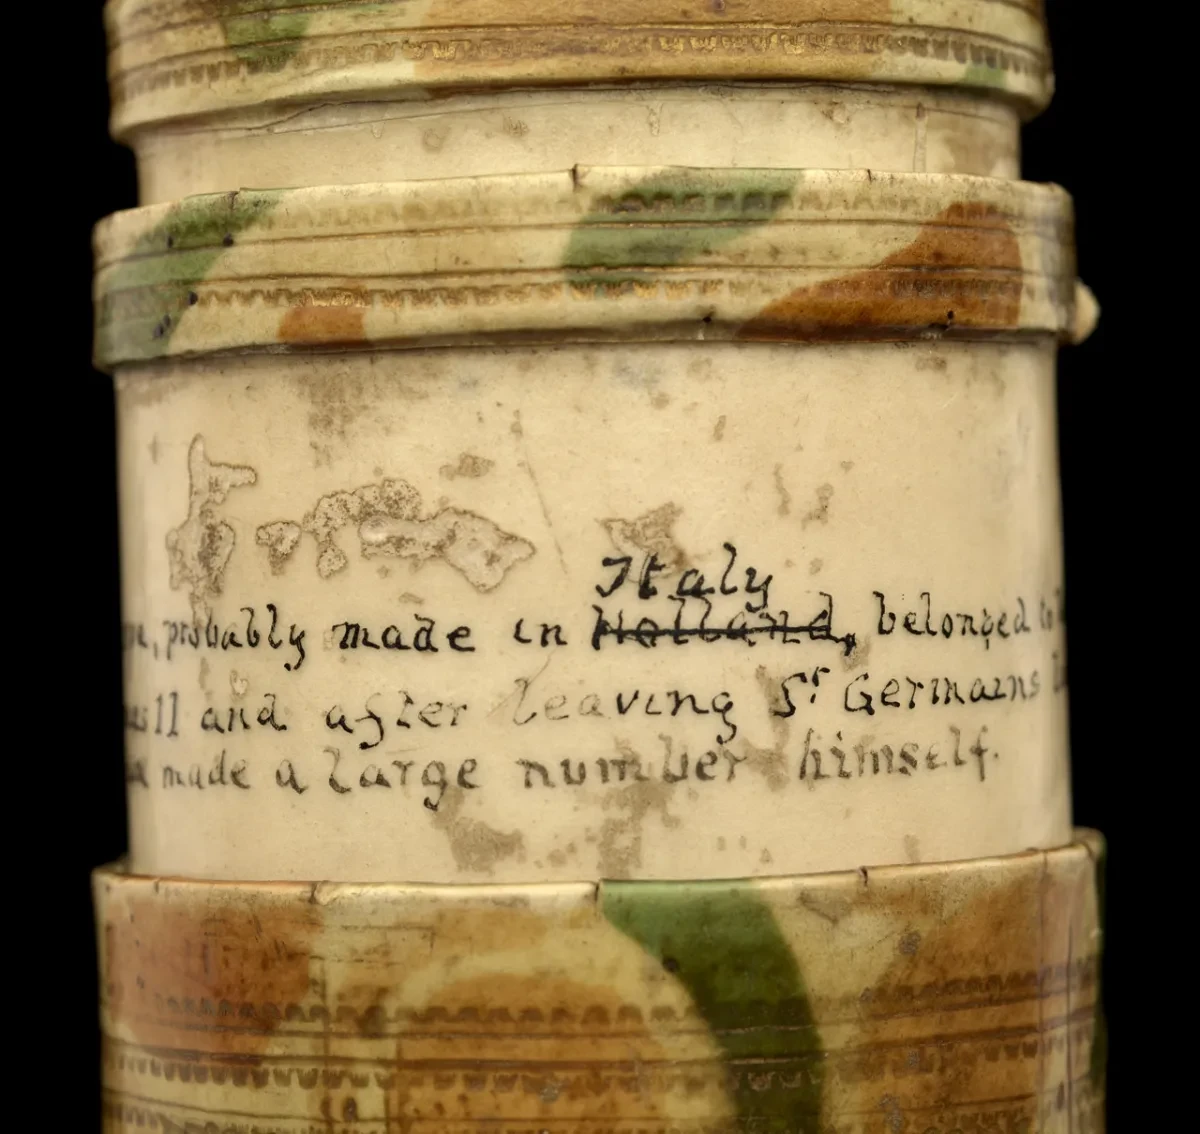 Italy
probably made in Holland, belonged to
II and after leaving Sr Germains
made a large number himself.